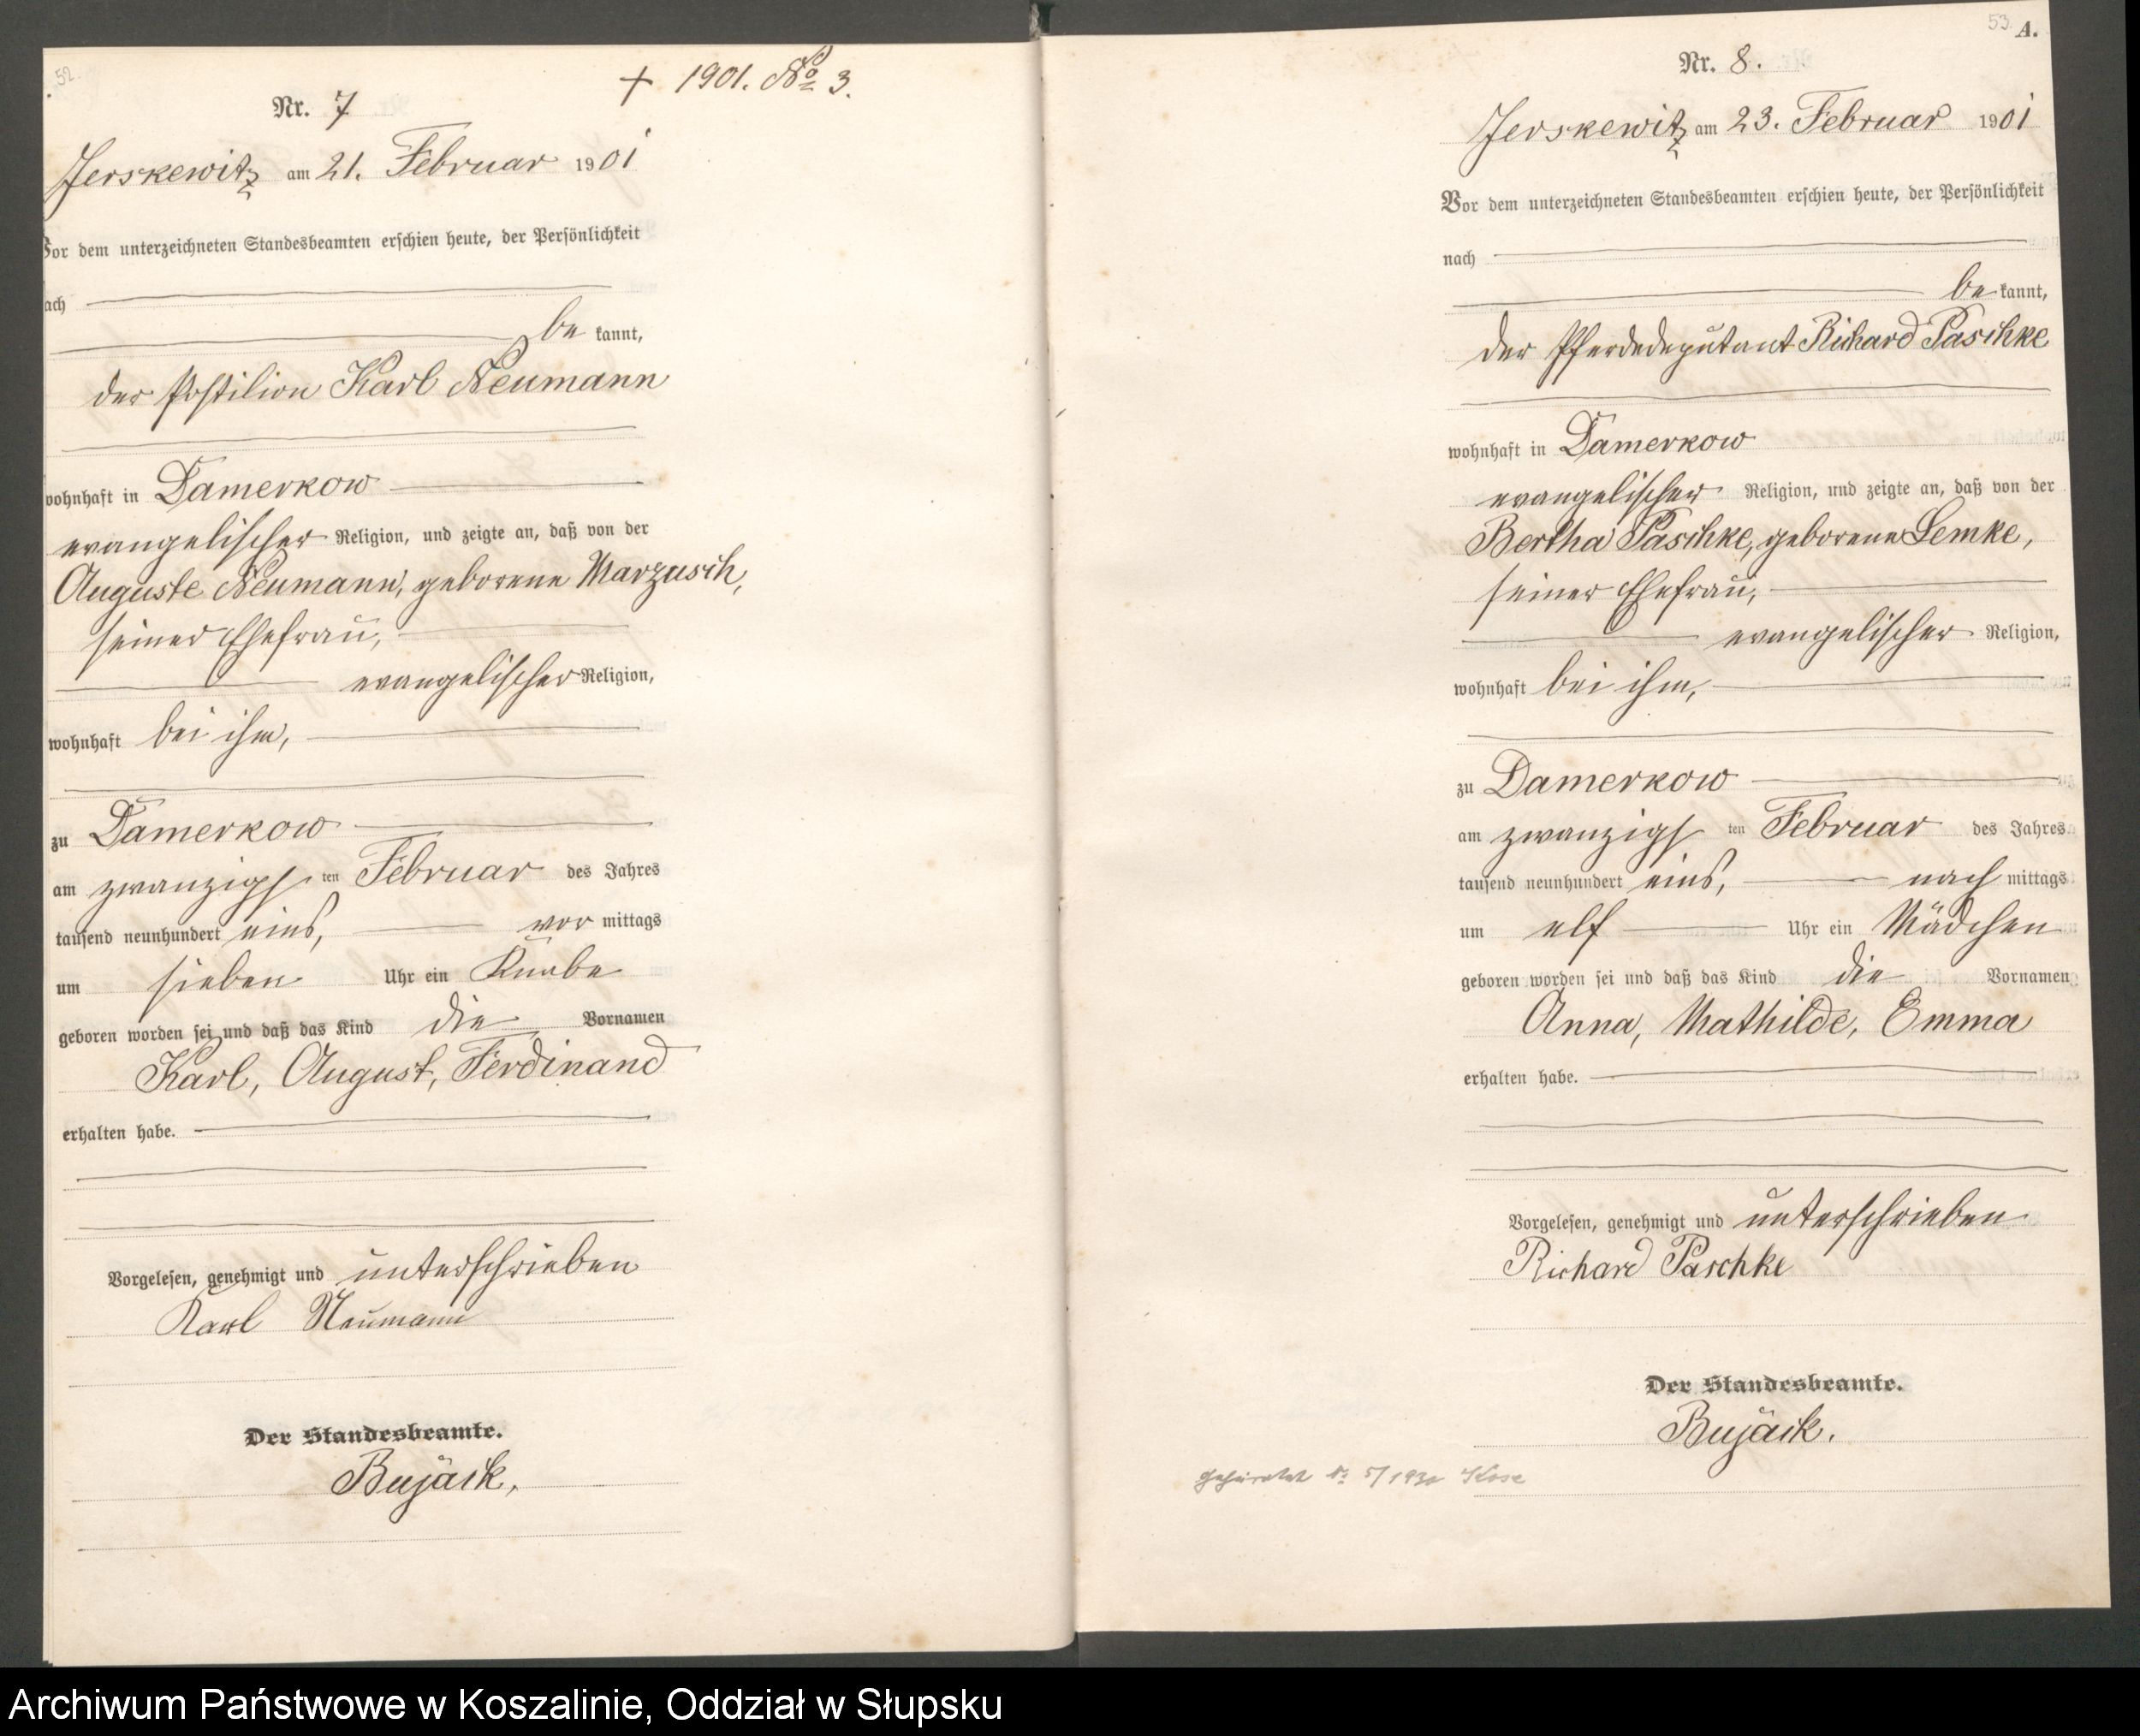 52.
Nr. 7
+ 1901. No 3.
Jerskewitz am 21. Februar 1901
Vor dem unterzeichneten Standesbeamten erschien heute, der Persönlichkeit
nach
be kannt,
der Postilion Karl Neumann
wohnhaft in Damerkow
evangelischer Religion, und zeigte an, daß von der
Auguste Neumann, geborene Marzusch,
seiner Ehefrau,
evangelischer Religion,
wohnhaft bei ihm,
zu Damerkow
am zwanzigs ten Februar des Jahres
tausend neunhundert eins, vor mittags
um sieben Uhr ein Knabe
geboren worden sei und daß das Kind die Vornamen
Karl, August, Ferdinand
erhalten habe.
Vorgelesen, genehmigt und unterschrieben
Karl Neumann
Der Standesbeamte.
Bujäck,
53. A.
Nr. 8.
Jerskewitz am 23. Februar 1901
Vor dem unterzeichneten Standesbeamten erschien heute, der Persönlichkeit
nach
be kannt,
der Pferdedeputant Richard Paschke
wohnhaft in Damerkow
evangelischer Religion, und zeigte an, daß von der
Bertha Paschke, geborene Lemke,
seiner Ehefrau,
evangelischer Religion,
wohnhaft bei ihm,
zu Damerkow
am zwanzigs ten Februar des Jahres
tausend neunhundert eins, nach mittags
um elf Uhr ein Mädchen
geboren worden sei und daß das Kind die Vornamen
Anna, Mathilde, Emma
erhalten habe.
Vorgelesen, genehmigt und unterschrieben
Richard Paschke
Der Standesbeamte.
Bujäck.
Geheiratet No 5/1930 Kose
Archiwum Państwowe w Koszalinie, Oddział w Słupsku